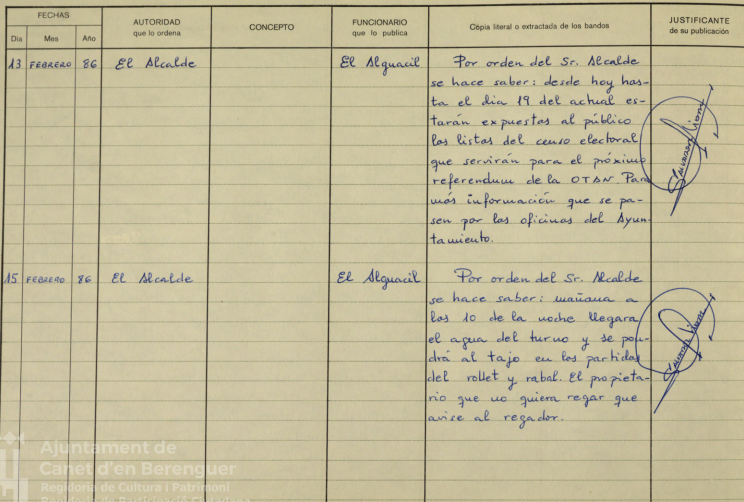 FECHAS
Día Mes Año
AUTORIDAD
que lo ordena
CONCEPTO
FUNCIONARIO
que lo publica
Copia literal o extractada de los bandos
JUSTIFICANTE
de su publicación
13 FEBRERO 86 El Alcalde El Alguacil
Por orden del Sr. Alcalde
se hace saber: desde hoy has-
ta el dia 19 del actual es-
tarán expuestas al público
las listas del censo electoral
que servirán para el próximo
referendum de la OTAN. Para
más información que se pa-
sen por las oficinas del Ayun-
tamiento.
15 FEBRERO 86 El Alcalde El Alguacil
Por orden del Sr. Alcalde
se hace saber: mañana a
las 10 de la noche llegara
el agua del turno y se pon-
drá al tajo en las partidas
del rollet y rabal. El propieta-
rio que no quiera regar que
avise al regador.
Ajuntament de
Canet d'en Berenguer
Regidoria de Cultura i Patrimoni
Regidoria de Participació Ciutadana